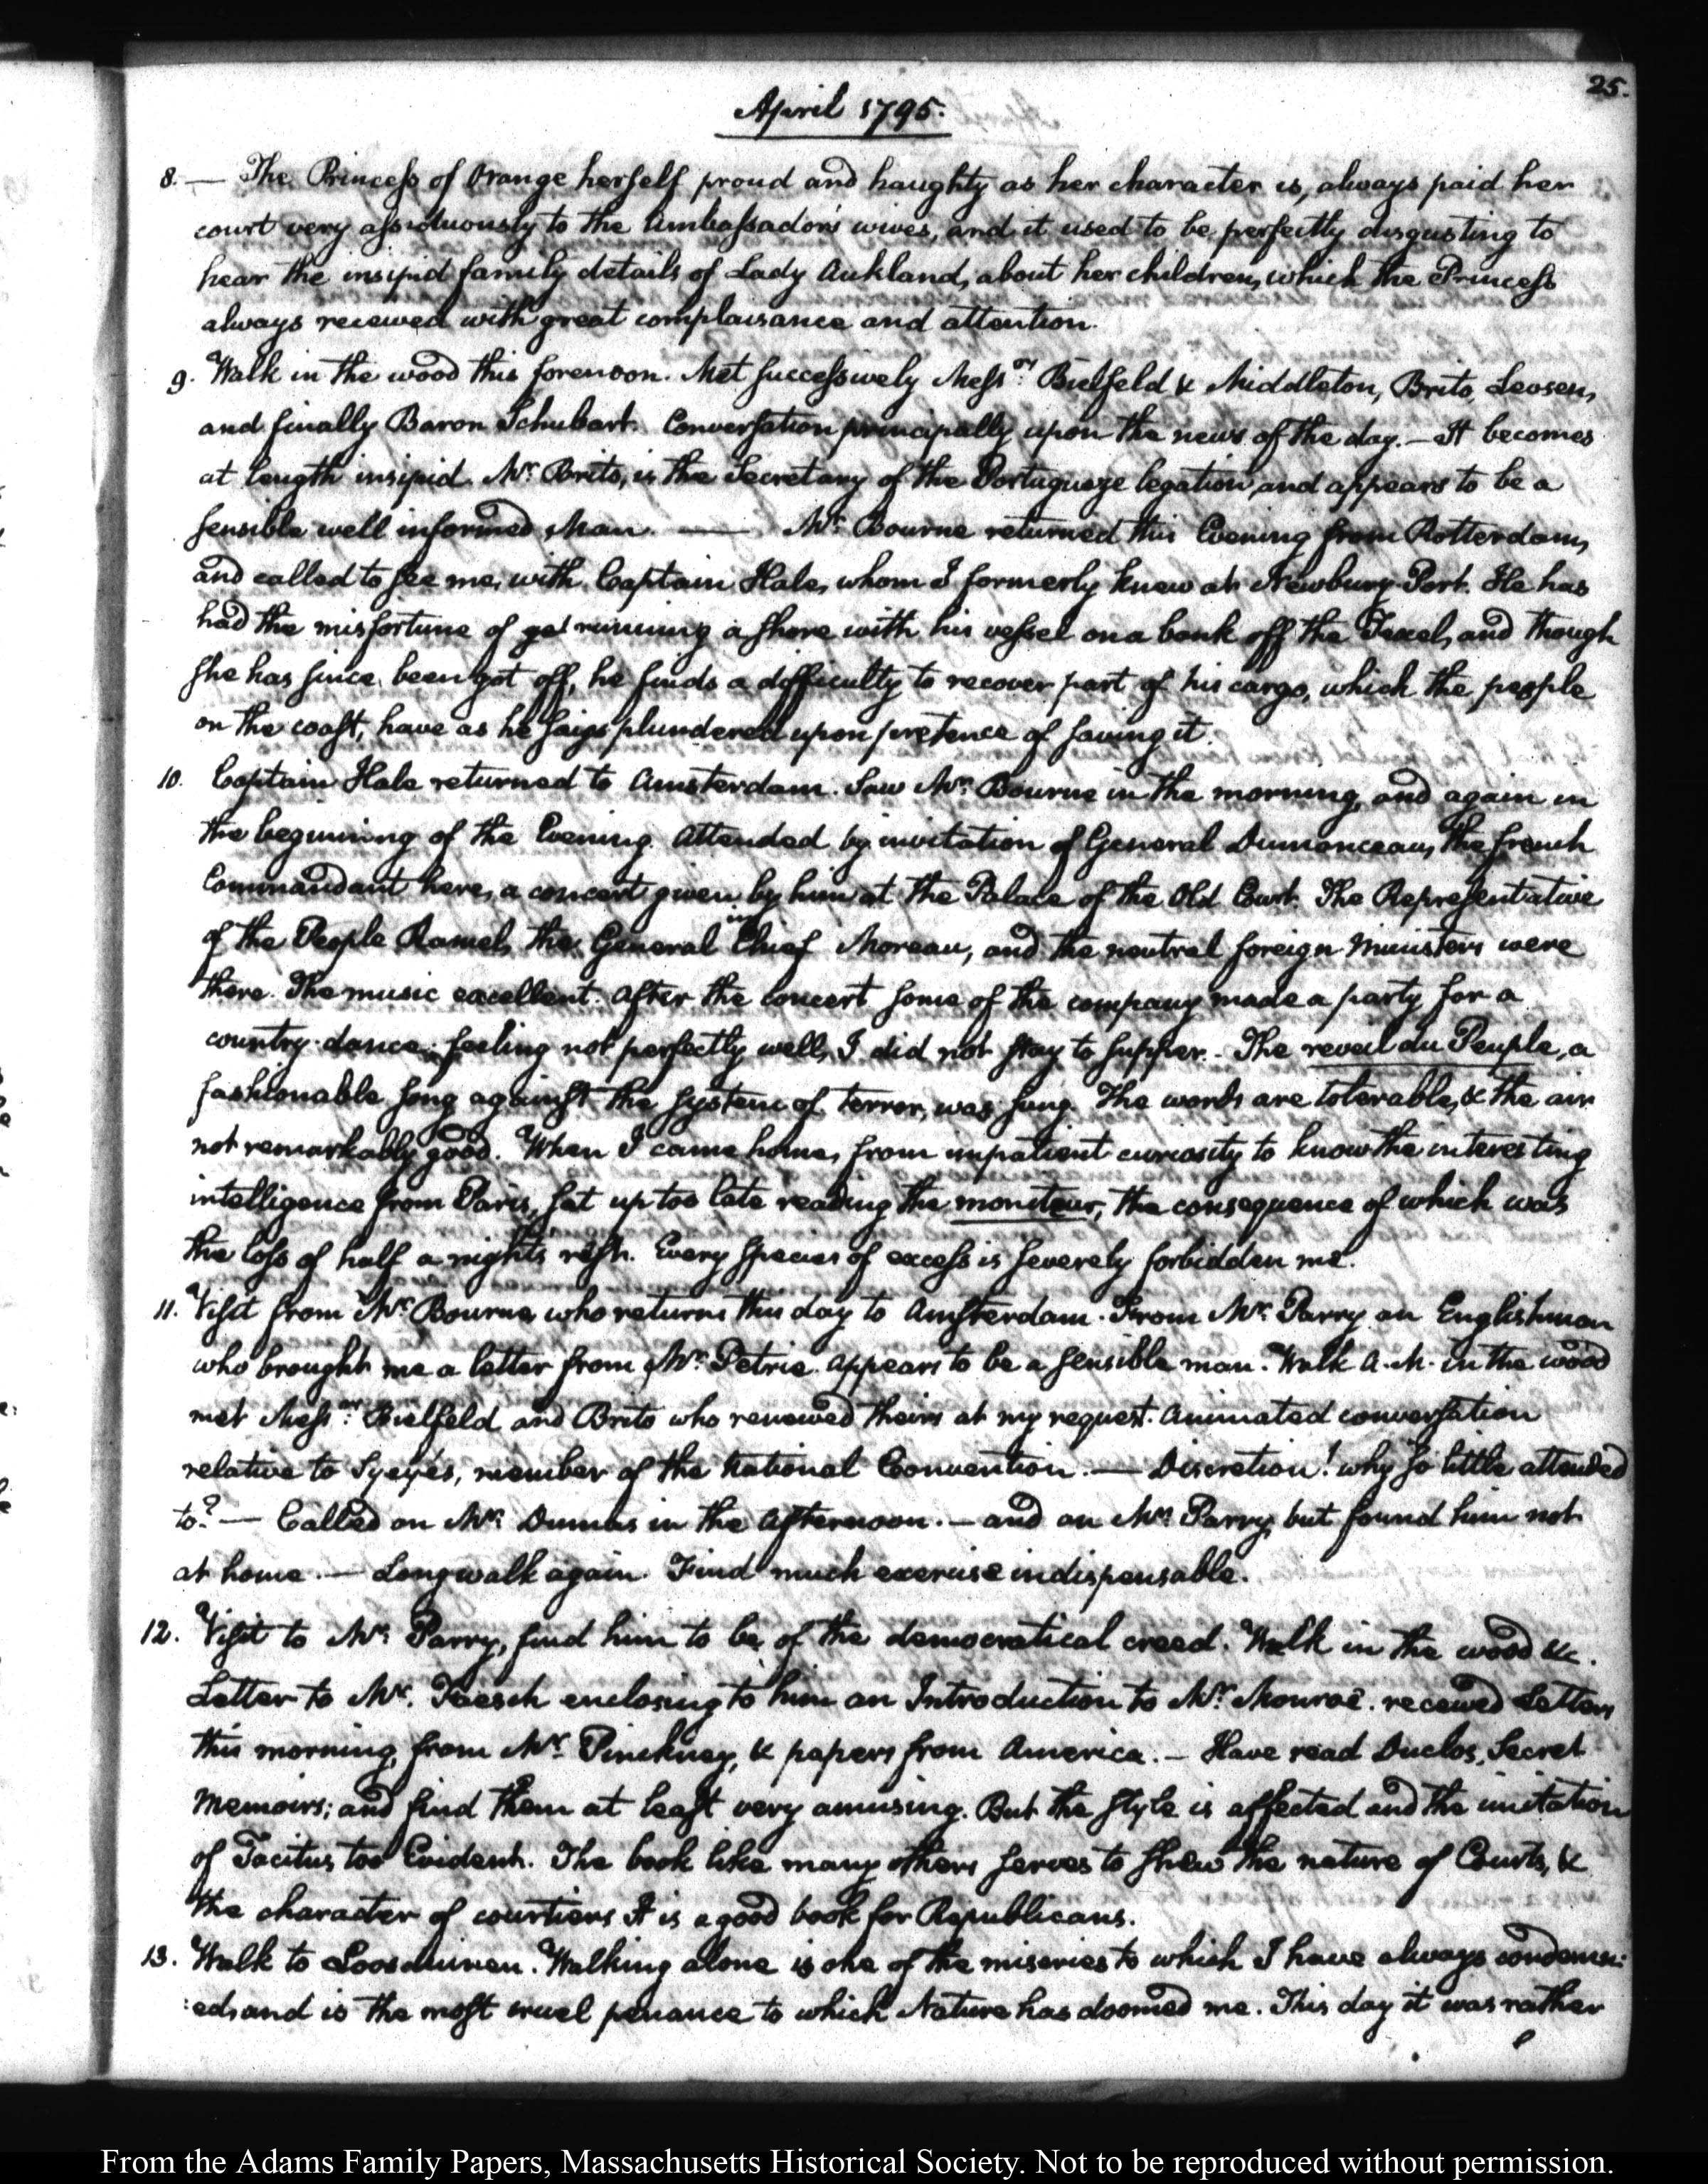 25.
April 1795.
8. — The Princess of Orange herself proud and haughty as her character is, always paid her
court very assiduously to the Ambassadors' wives, and it used to be perfectly disgusting to
hear the insipid family details of Lady Aukland, about her children, which the Princess
always received with great complaisance and attention.
9. Walk in the wood this forenoon. Met successively Messrs: Bielfeld & Middleton, Brito, Levsen,
and finally Baron Schubart. Conversation principally upon the news of the day. — It becomes
at length insipid. Mr: Brito, is the Secretary of the Portugueze legation, and appears to be a
sensible well informed Man. — Mr: Bourne returned this Evening from Rotterdam,
and called to see me, with Captain Hale, whom I formerly knew at Newbury-Port. He has
had the misfortune of get running ashore with his vessel on a bank off the Texel, and though
she has since been got off, he finds a difficulty to recover part of his cargo, which the people
on the coast, have as he says plundered upon pretence of saving it.
10. Captain Hale returned to Amsterdam. Saw Mr: Bourne in the morning, and again in
the beginning of the Evening. Attended by invitation of General Dumonceau, the french
Commandant here, a concert given by him at the Palace of the Old Court. The Representative
of the People Ramel, the General in Chief Moreau, and the neutral foreign Ministers were
there. The music excellent. After the concert some of the company made a party for a
country-dance; feeling not perfectly well, I did not stay to supper. - The reveil du Peuple, a
fashionable song against the system of terror, was sung. The words are tolerable, & the air
not remarkably good. When I came home, from impatient curiosity to know the interesting
intelligence from Paris, sat up too late reading the moniteur, the consequence of which was
the loss of half a night's rest. Every species of excess is severely forbidden me.
11. Visit from Mr: Bourne, who returns this day to Amsterdam. From Mr: Parry an Englishman
who brought me a letter from Mr: Petrie. appears to be a sensible man. Walk A.M. in the wood
met Messrs: Bielfeld and Brito who renewed theirs at my request. Animated conversation
relative to Syeyès, member of the National Convention. — Discretion! why so little attended
to? — Called on Mr: Dumas in the Afternoon. — and on Mr: Parry, but found him not
at home. — Long walk again. Find much exercise indispensable.
12. Visit to Mr: Parry, find him to be of the democratical creed. Walk in the wood &c.
Letter to Mr. Faesch enclosing to him an Introduction to Mr: Monroe. received Letters
this morning, from Mr. Pinckney, & papers from America. — Have read Duclos, Secret
Memoirs; and find them at least very amusing. But the style is affected and the imitation
of Tacitus too Evident. The book like many others serves to shew the nature of Courts, &
the character of courtiers. It is a good book for Republicans.
13. Walk to Loosduinen. Walking alone is one of the miseries to which I have always condemn:
:ed, and is the most cruel penance to which Nature has doomed me. This day it was rather
From the Adams Family Papers, Massachusetts Historical Society. Not to be reproduced without permission.